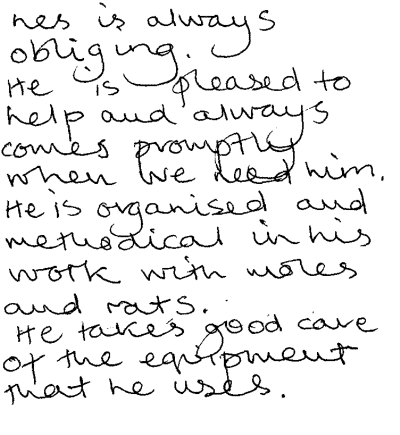 nes is always
obliging.
He is pleased to
help and always
comes promptly
when we need him.
He is organised and
methodical in his
work with moles
and rats.
He takes good care
of the equipment
that he uses.